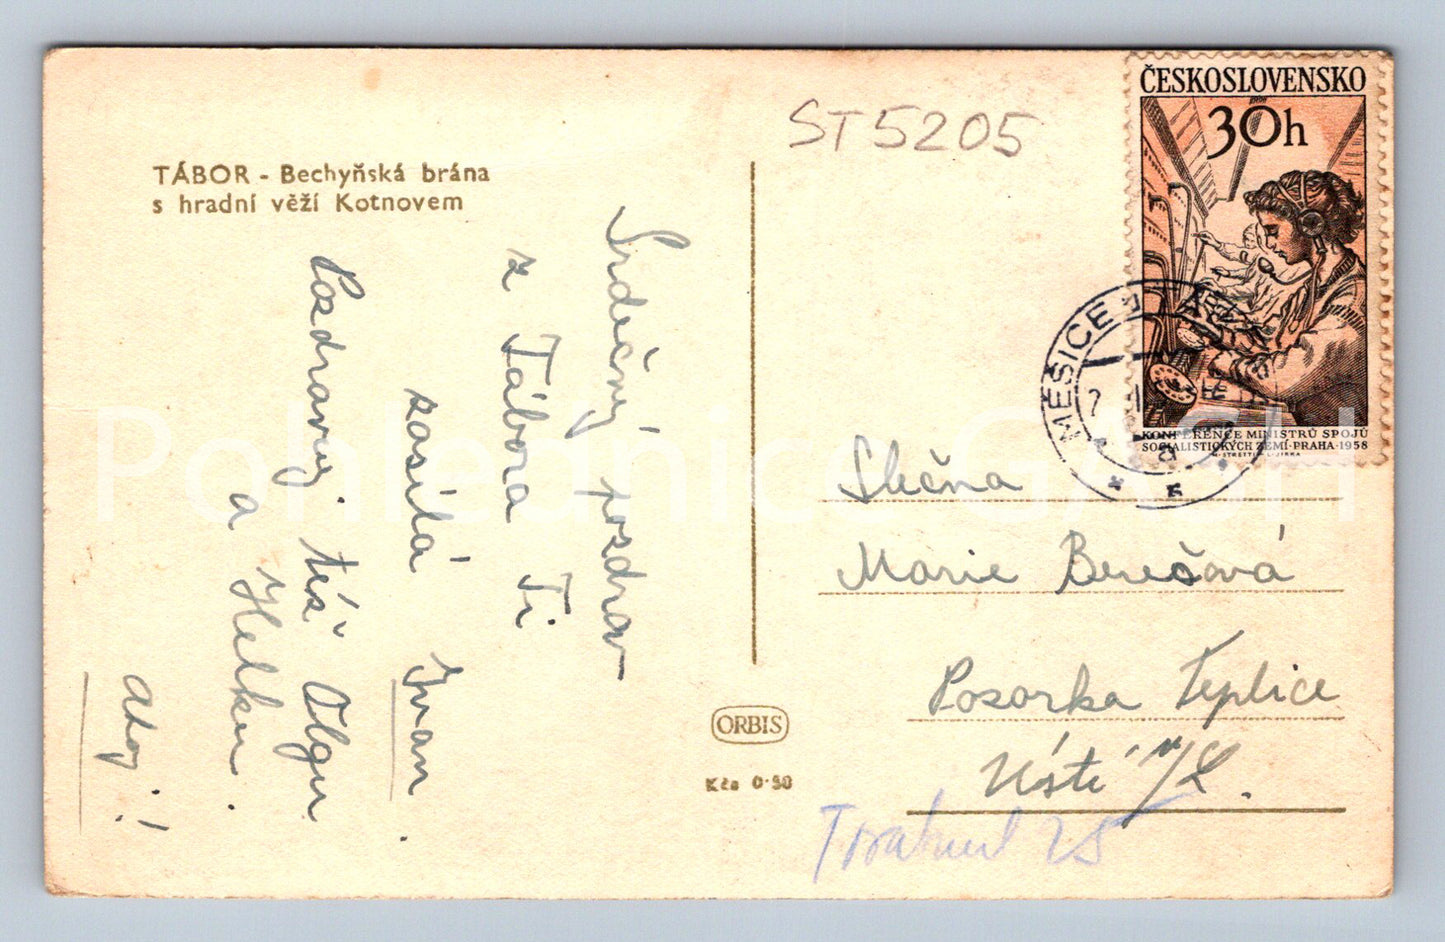 TÁBOR - Bechyňská brána
s hradní věží Kotnovem
ST5205
ČESKOSLOVENSKO
30h
KONFERENCE MINISTRŮ SPOJŮ
SOCIALISTICKÝCH ZEMÍ·PRAHA·1958
MĚŠICE
Srdečný pozdrav
z Tábora Ti
zasílá Ivan.
Pozdravuj též Olgu
a Helku.
ahoj!
Slečna
Marie Berešová
Posorka Teplice
Ústí n/L.
25
ORBIS
Kčs 0·50
Pohlednice GASH